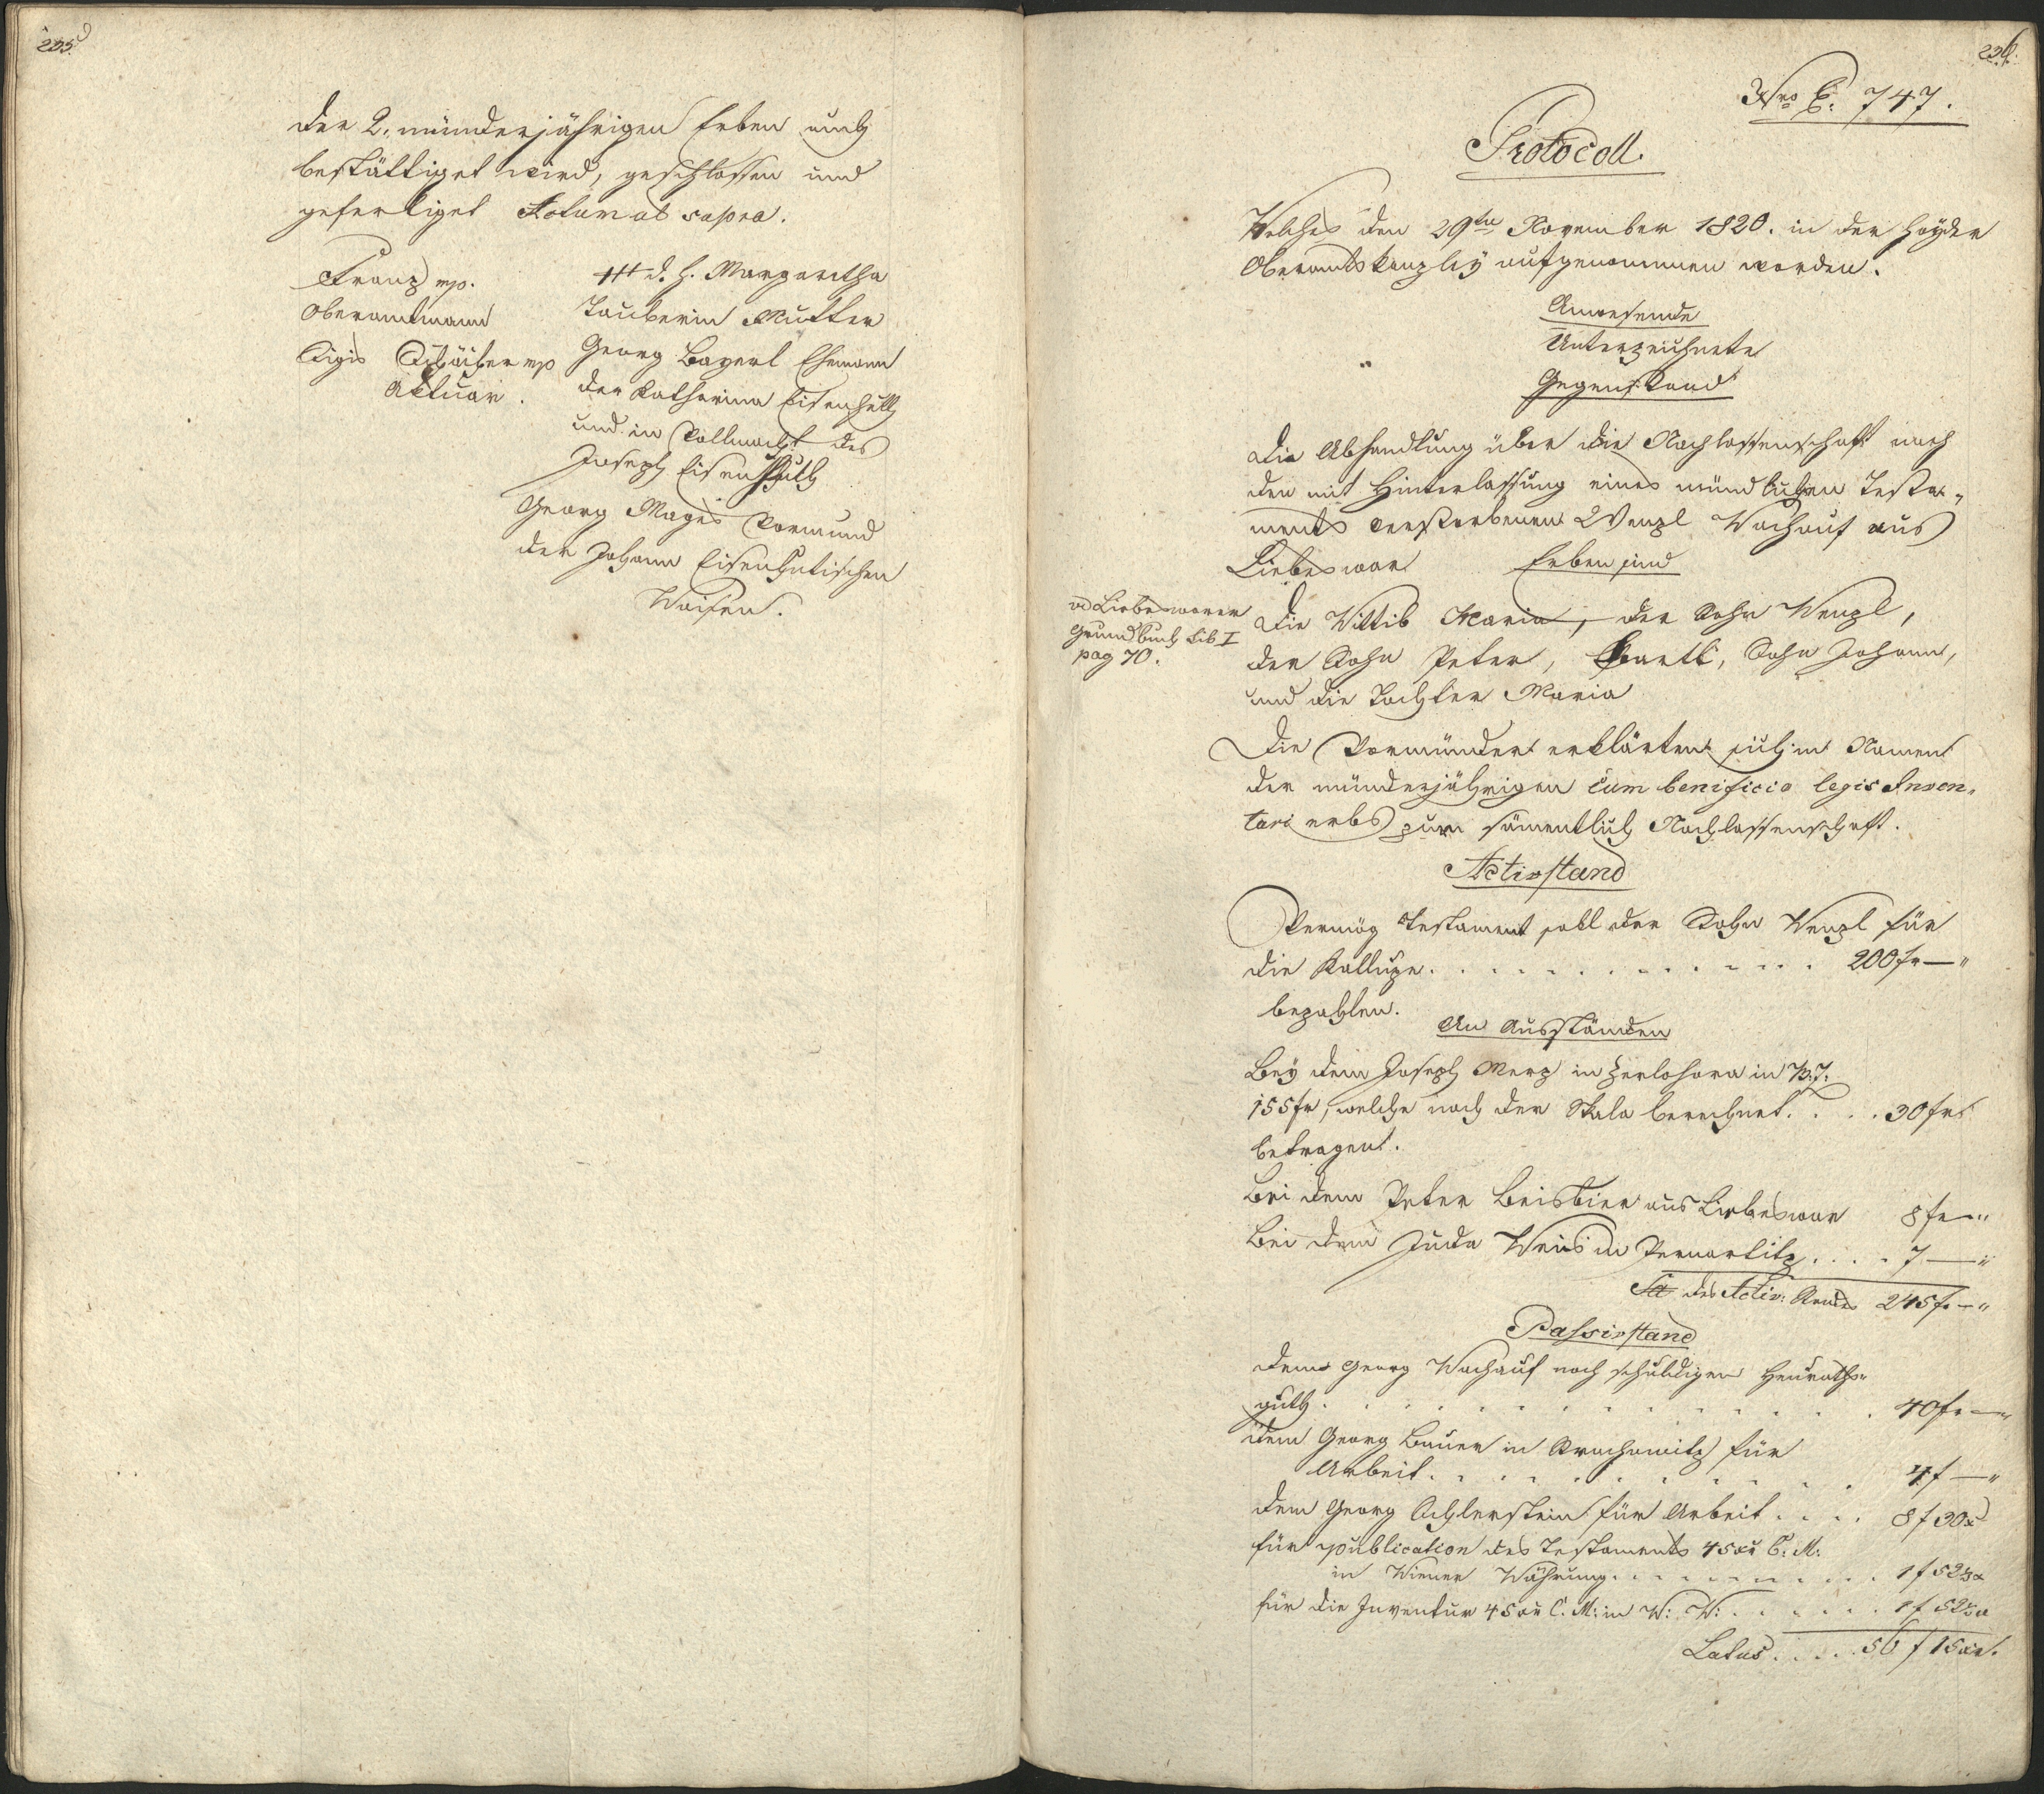 205.
der 2. minderjährigen Erben auch
bestättiget wird, geschlossen und
gefertiget Actum ut supra.
Franz mp.
Oberamtmann
Sigis Schäfer mp
Aktuar.
+++ d. h. Margaretha
Tauberin Mutter
Georg Bayerl Ehemann
der Katharina Eisenhuth
und in Vollmacht des
Joseph Eisenhuth
Georg Mages Vormund
der Johann Eisenhutischen
Waisen.
206.
Nro E. 747.
Protocoll.
Welches den 29ten November 1820. in der Hayder
Oberamtskanzley aufgenommen worden.
Anwesende
Unterzeichnete
Gegenstand
Die Abhandlung über die Nachlassenschaft nach
den mit Hinterlassung eines mündlichen Testa-
ments verstorbenen Wenzl Wachauf aus
Liebeswar
Erben sind
vd Liebeswarer
Grundbuch Lib I
pag 70.
Die Wittib Maria, der Sohn Wenzl,
der Sohn Peter, Bartl, Sohn Johann,
und die Tochter Maria
Die Vormünder erklärten sich im Namen
der minderjährigen cum benificio legis Inven-
tari erbs zum sämentlich Nachlassenschaft.
Activstand
Vermög Testament soll der Sohn Wenzl für
die Kallupe . . . . . . . . . . . . 200 fr — "
bezahlen.
An Ausständen
Bey dem Joseph Merz in Zerlohora in B: Z:
155 fr, welche nach der Skala berechnet . . . . 30 fr
betragen.
Bei dem Peter Beisbier aus Liebeswar 8 fr — "
Bei dem Juda Weis in Pernartitz . . . . 7 — "
Sa des Activ: Standes 245 f. — "
Passivstand
dem Georg Wachauf noch schuldigen Heuraths-
guth . . . . . . . . . . . . . . 40 fr — "
dem Georg Bauer in Strachowitz für
Arbeit . . . . . . . . . . . . 4 f — "
dem Georg Achlerstein für Arbeit . . . . 8 f 30 x
für publication des Testaments 45 xr C. M:
in Wiener Währung . . . . . . . . . 1 f 52 ½ x
für die Inventur 45 xr C. M: in W: W: . . . . . . 1 f 52 ½ x
Latus . . . . . 56 f 15 xr.